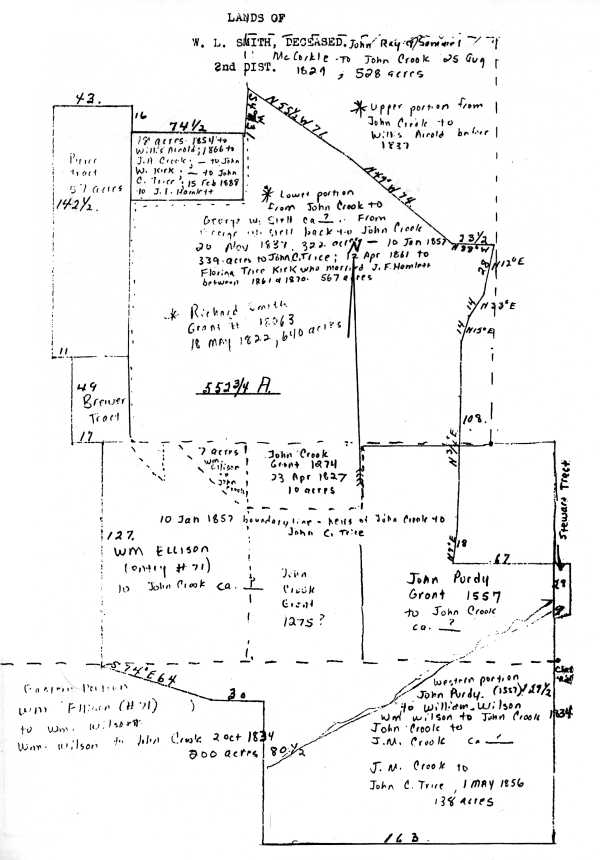 LANDS OF
W. L. SMITH, DECEASED. John Ray of Somervel
McCorkle to John Crook 25 Aug
2nd DIST. 1824, 528 acres
43.
16
74½
N 55½ W 71
* Upper portion from
John Crook to
Willis Arold before
1837
18 acres 1854 to
Willis Arold; 1866 to
J.A Crook; — to John
W. Kirk; — to John
C. Trice; 15 Feb 1888
to J. F. Hamlett
tract
57 acres
142½.
N 49° W 74
* Lower portion
from John Crook to
George W. Sirll ca ? . From
George W. Sirll back to John Crook
20 Nov 1837, 322 acres — 10 Jan 1857
339 acres to John C. Trice; 12 Apr 1861 to
Florina Trice Kirk who married J. F. Hamlett
between 1861 & 1870. 567 acres
N
23½
N 88° W
28
N 12° E
14
N 33° E
14
N 15° E
* Richard Smith
Grant # 18063
18 May 1822, 640 acres
11
552¾ A.
49
Brewer
Tract
17
108.
7 acres
Wm
Ellison
to
John
Crook
John Crook
Grant 1274
23 Apr 1827
10 acres
10 Jan 1857 boundary line - heirs of John Crook to
John C. Trice
Stewart Tract
127.
WM Ellison
(entry # 71)
to John Crook ca. ?
John
Crook
Grant
1275 ?
18
67
John Purdy
Grant 1557
to John Crook
ca. ?
28
S 74° E 64
Eastern Portion
Wm Ellison (# 71)
to Wm. Wilson
Wm. Wilson to John Crook 2 Oct 1834
200 acres
30
80½
Western portion
John Purdy (1557) 127½
to William Wilson
Wm Wilson to John Crook 1834
John Crook to
J.M. Crook ca ?
J. M. Crook to
John C. Trice, 1 MAY 1856
138 acres
163